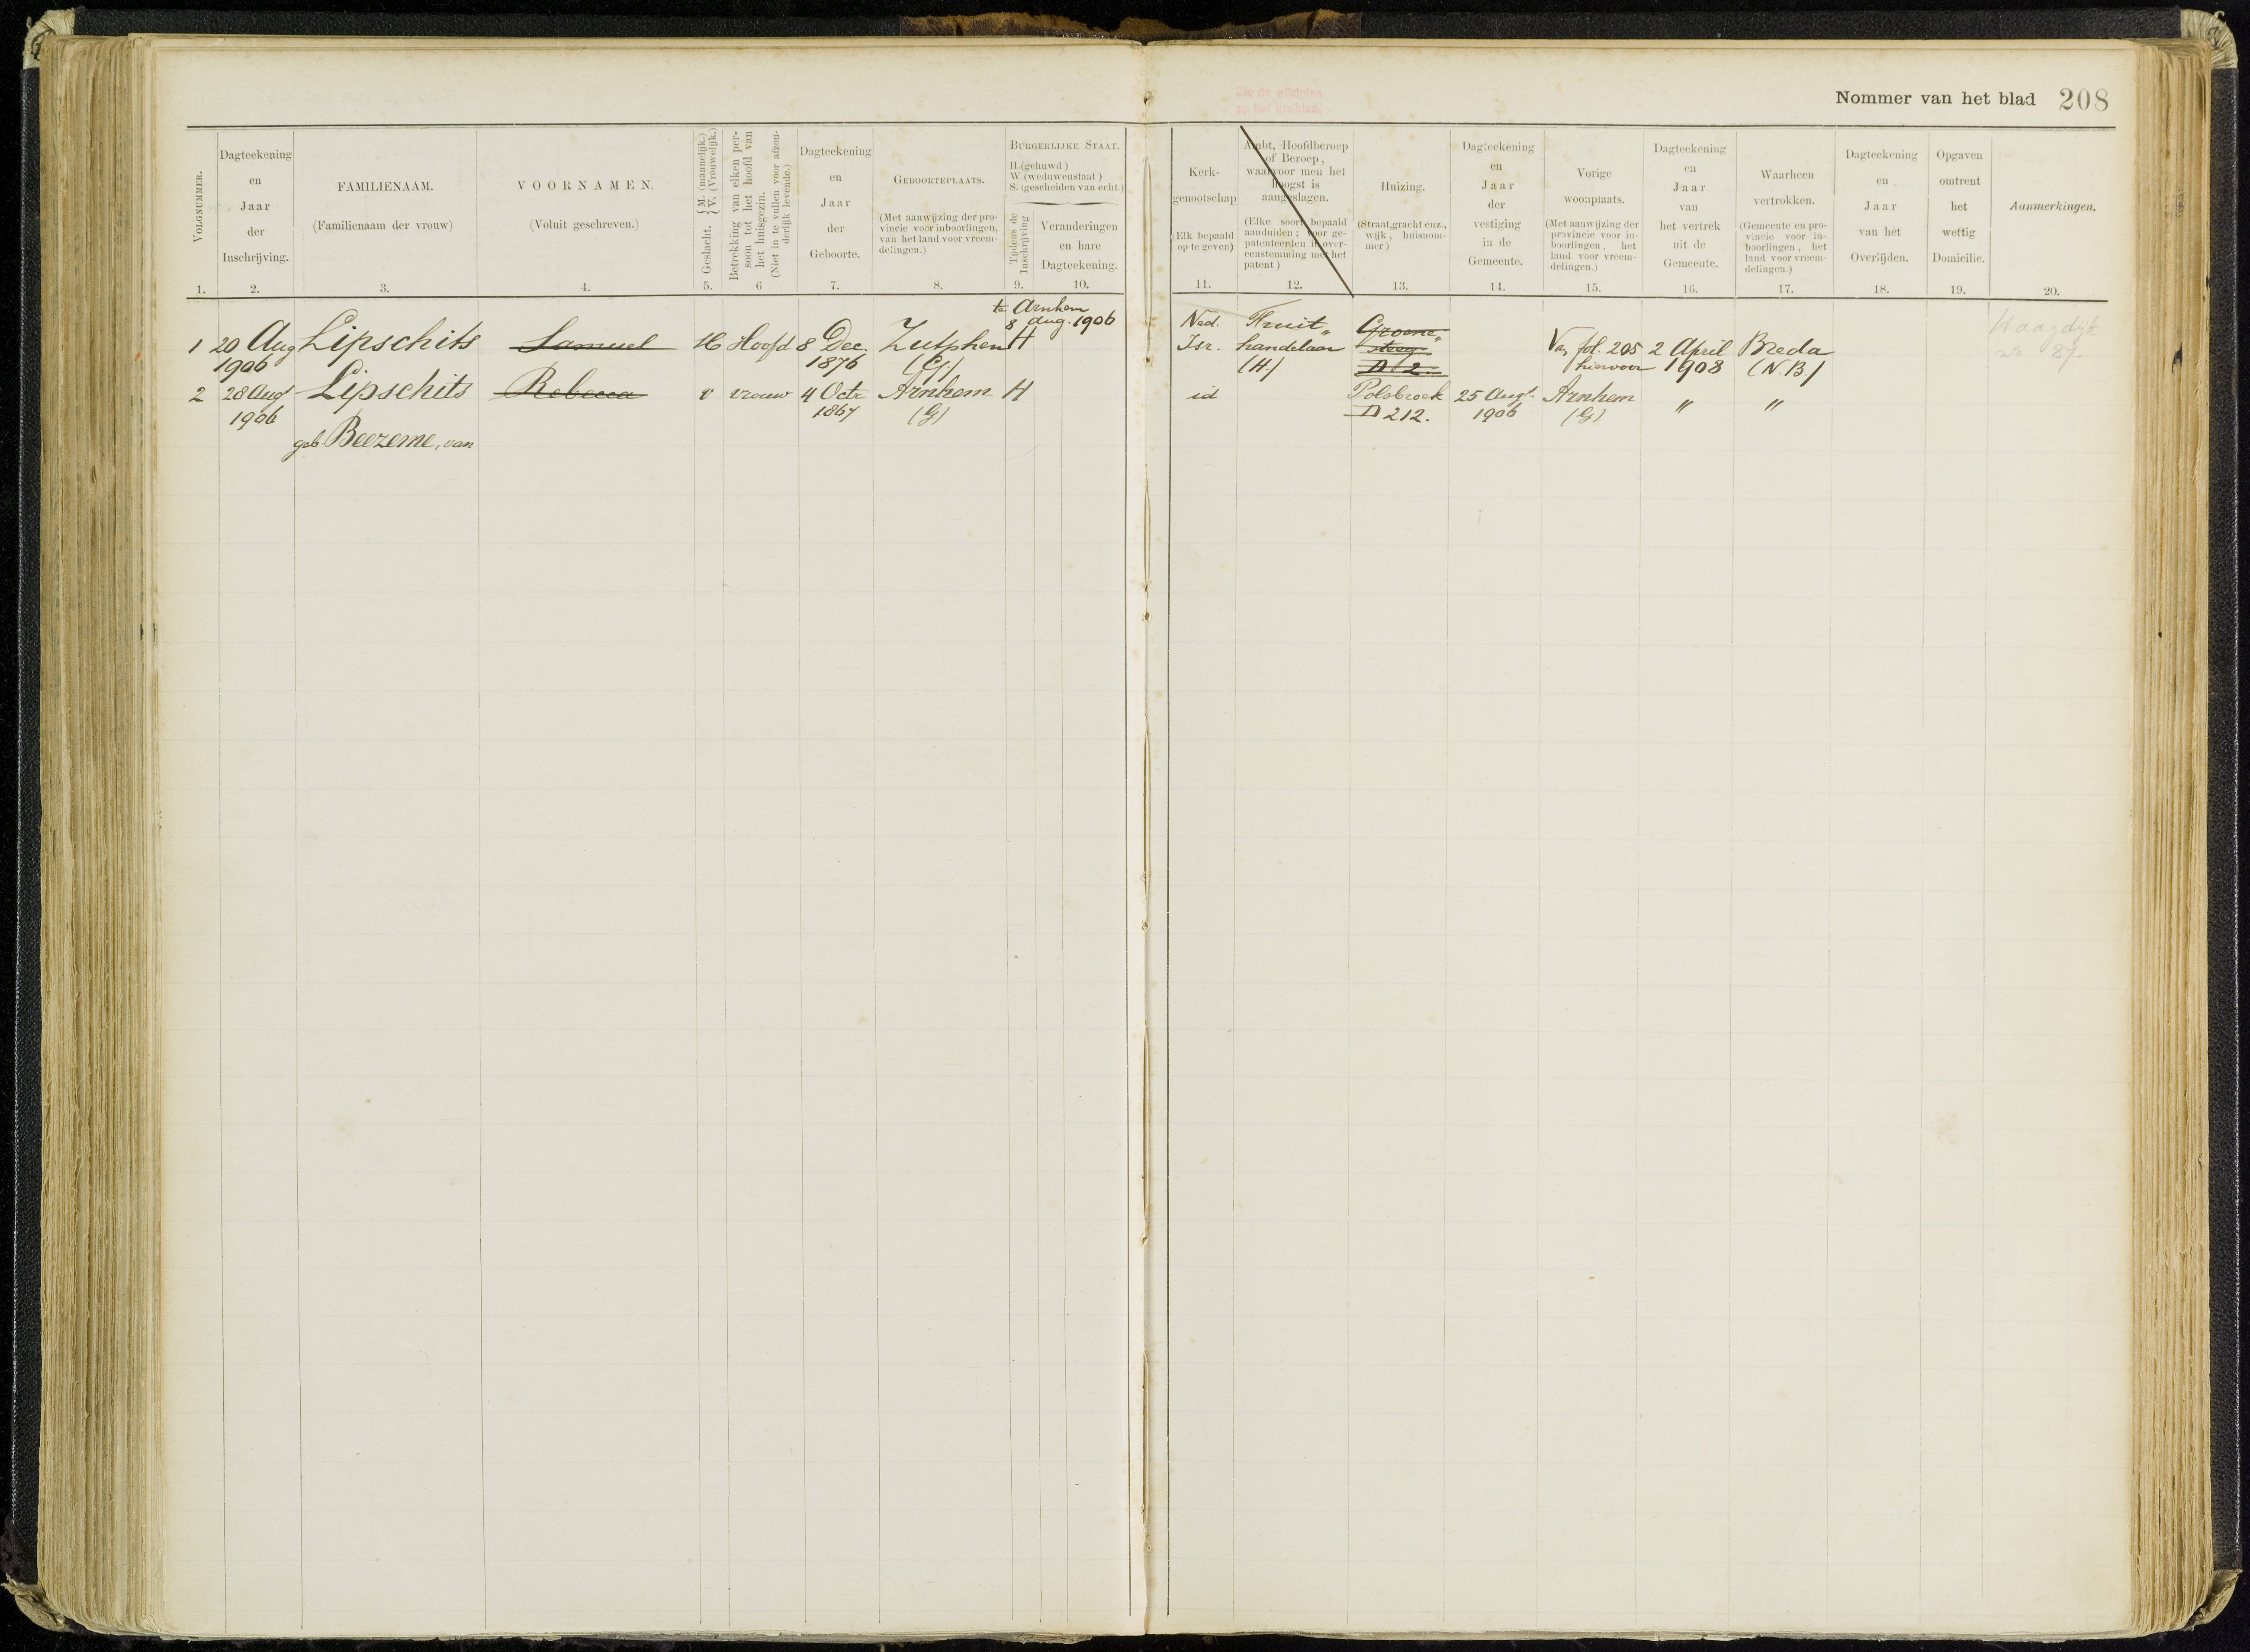 Zie de wijziging
op het titelblad.
Nommer van het blad 208
VOLGNUMMER.
1.
Dagteekening
en
Jaar
der
Inschrijving.
2.
FAMILIENAAM.
(Familienaam der vrouw)
3.
VOORNAMEN.
(Voluit geschreven.)
4.
Geslacht. { M. (mannelijk.)
V. (Vrouwelijk.)
5.
Betrekking van elken per-
soon tot het hoofd van
het huisgezin.
(Niet in te vullen voor afzon-
derlijk levende.)
6
Dagteekening
en
Jaar
der
Geboorte.
7.
GEBOORTEPLAATS.
(Met aanwijzing der pro-
vincie voor inboorlingen,
van het land voor vreem-
delingen.)
8.
BURGERLIJKE STAAT.
H.(gehuwd)
W (weduwenstaat)
S. (gescheiden van echt.)
Tijdens de
Inschrijving
9.
Veranderingen
en hare
Dagteekening.
10.
Kerk-
genootschap
Elk bepaald
op te geven)
11.
Ambt, Hoofdberoep
of Beroep,
waarvoor men het
hoogst is
aangeslagen.
(Elke soort bepaald
aanduiden; voor ge-
patenteerden in over-
eenstemming met het
patent)
12.
Huizing.
(Straat, gracht enz.,
wijk, huisnom-
mer)
13.
Dagteekening
en
Jaar
der
vestiging
in de
Gemeente.
14.
Vorige
woonplaats.
(Met aanwijzing der
provincie voor in-
boorlingen, het
land voor vreem-
delingen.)
15.
Dagteekening
en
Jaar
van
het vertrek
uit de
Gemeente.
16.
Waarheen
vertrokken.
(Gemeente en pro-
vincie voor in-
boorlingen, het
land voor vreem-
delingen.)
17.
Dagteekening
en
Jaar
van het
Overlijden.
18.
Opgaven
omtrent
het
wettig
Domicilie.
19.
Aanmerkingen.
20.
te Arnhem
8 Aug. 1906
1 20 Aug Lipschits Samuel M Hoofd 8 Dec. Zutphen H
1906 1876 (G)
2 28 Aug Lipschits Rebecca v vrouw 4 Octr Arnhem H
1906 1867 (G)
geb. Beezeme, van
Ned. Fruit„ Groene„ Haagdijk
Isr. handelaar steeg. Van fol. 205 2 April Breda 87.
(H) D 2 hiervoor 1908 (N.B)
id Polsbroek 25 Augt. Arnhem " "
D 212. 1906 (G)